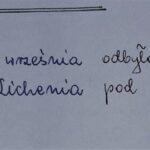 września odbył
Lichenia pod